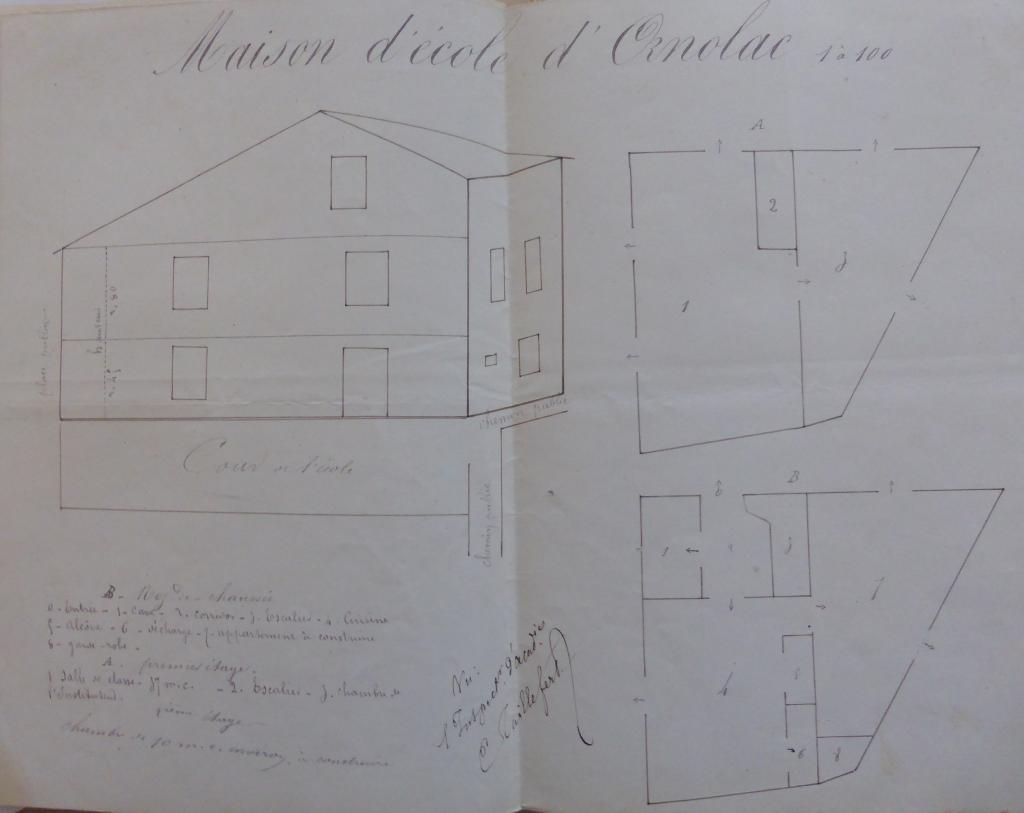 Maison d'école d'Ornolac 1 à 100
A
2
3
1
place publique
hauteur
2.80
2.45
chemin public
Cour de l'école
chemin public
B
0
1
2
3
7
4
5
6
8
B - Rez de chaussée
0 - Entrée - 1 - cave - 2 - corridor - 3 - Escalier - 4 - Cuisine
5 - Alcôve - 6 - décharge - 7 - appartement à construire
8 - garde-robe.
A - premier étage.
1 Salle de classe 37 m.c. - 2 - Escalier - 3 - chambre de
l'Instituteur.
étage
chambre de m.c. environ, à construire
Vu:
l'Inspecteur d'académie
Taillefert